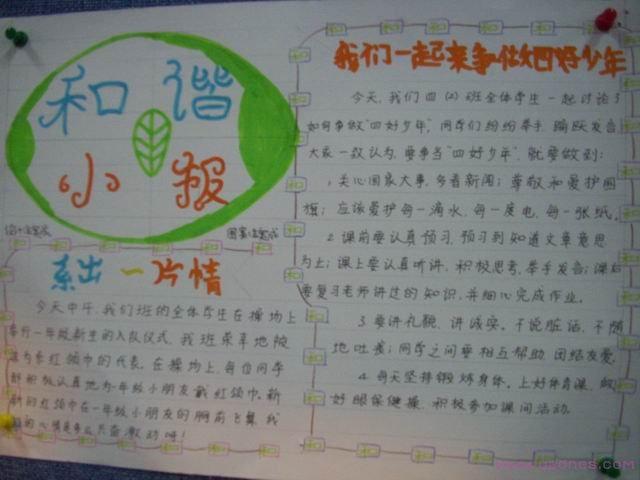 和谐
小报
系出一片情
今天中午,我们班的全体学生在操场上
举行一年级新生的入队仪式,我班荣幸地被
选为系红领巾的代表。在操场上,每位同学
都积极认真地为一年级小朋友戴红领巾。新
新的红领巾在一年级小朋友的胸前飞舞,我
的心情是多么兴奋激动呀!
我们一起来争做四好少年
今天,我们四(2)班全体学生一起讨论了
如何争做“四好少年”,同学们纷纷举手,踊跃发言
大家一致认为,要争当“四好少年”就要做到:
1.关心国家大事,多看新闻;尊敬和爱护国
旗;应该爱护每一滴水,每一度电,每一张纸。
2.课前要认真预习,预习到知道文章意思
为止;课上要认真听讲,积极思考,举手发言;课后
要复习老师讲过的知识,并细心完成作业。
3.要讲礼貌,讲诚实。不说脏话,不随
地吐痰;同学之间要相互帮助,团结友爱。
4.每天坚持锻炼身体。上好体育课,做
好眼保健操,积极参加课间活动。